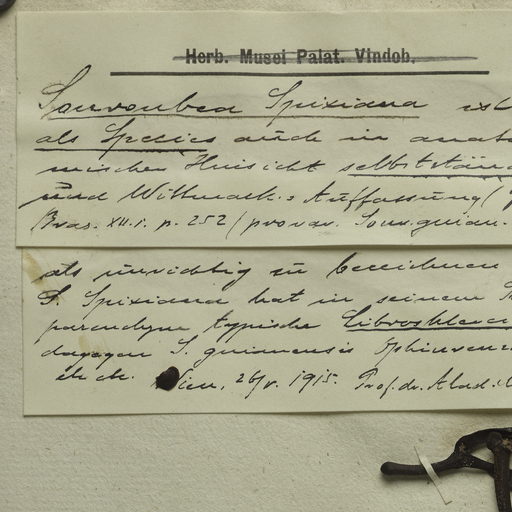 Herb. Musei Palat. Vindob.
Souroubea Spixiana ist
als Species auch in anato-
mischer Hinsicht selbststän
und Wittmack's Auffassung (
Bras. XII.1. p. 252) pro var. Sour. guian.
als unrichtig zu bezeichnen
S. Spixiana hat in seinem
parenchym typische Fibroskler
dagegen S. guianensis
etc. etc. Wien, 26/V. 1915. Prof. dr.